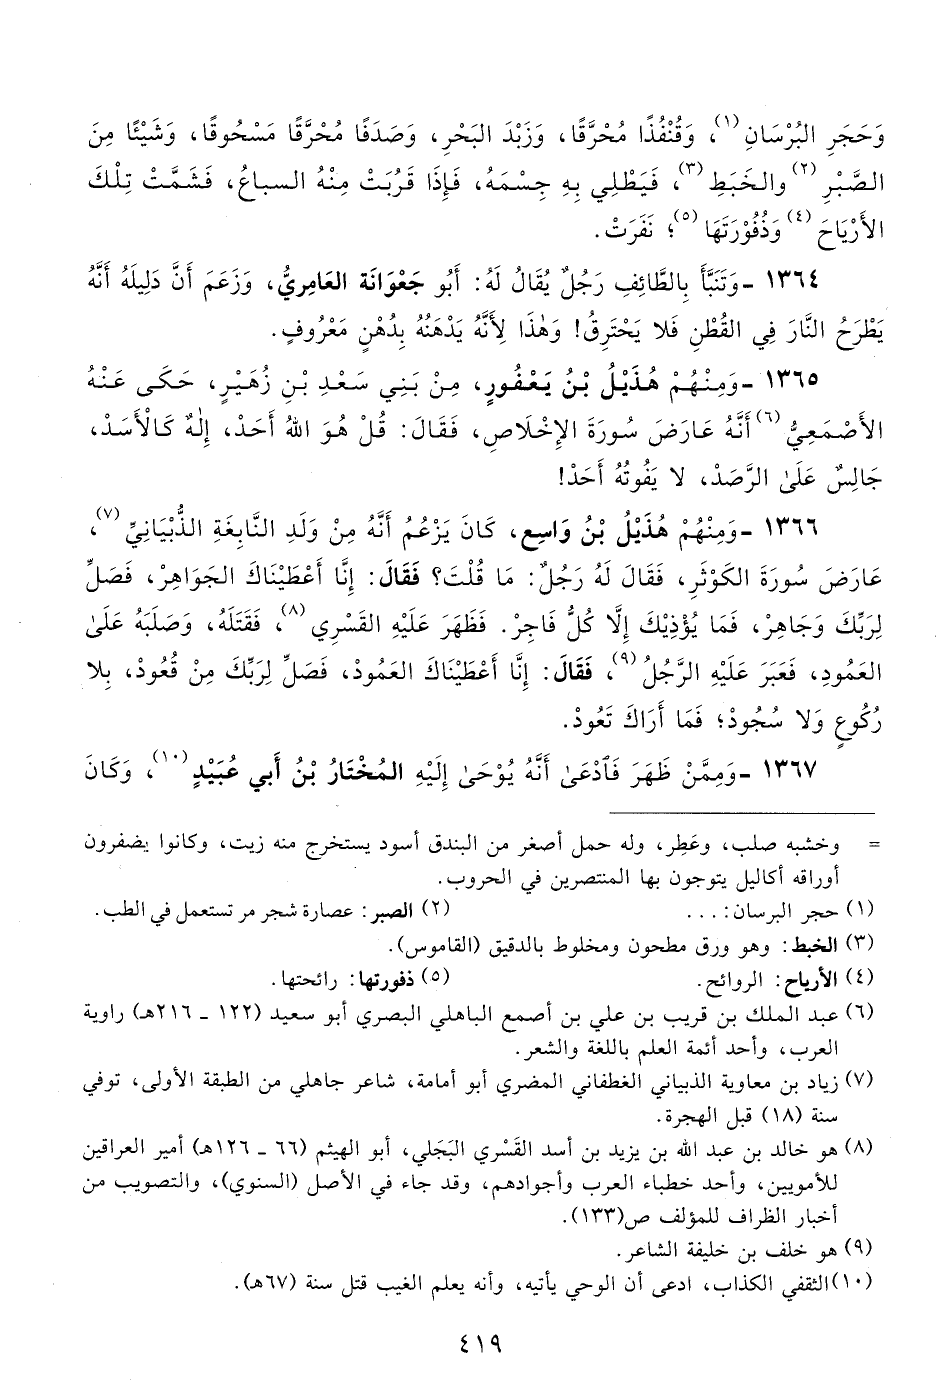 وَحَجَرِ البُرْسَانِ(١)، وَقُنْفُذًا مُحْرَقًا، وَزَبْدَ البَحْرِ، وَصَدَفًا مُحْرَّقًا مَسْحُوقًا، وَشَيْئًا مِنَ
الصَّبْرِ(٢) والخَبَطِ(٣)، فَيَطْلِي بِهِ جِسْمَهُ، فَإِذَا قَرُبَتْ مِنْهُ السباعُ، فَشَمَّتْ تِلْكَ
الأَرْيَاحَ(٤) وَذُفُورَتَهَا(٥)؛ نَفَرَتْ.
١٣٦٤ - وَتَنَبَّأَ بِالطَّائِفِ رَجُلٌ يُقَالُ لَهُ: أَبُو جَعْوَانَةَ العَامِرِيُّ، وَزَعَمَ أَنَّ دَلِيلَهُ أَنَّهُ
يَطْرَحُ النَّارَ فِي القُطْنِ فَلا يَحْتَرِقُ! وَهٰذَا لِأَنَّهُ يَدْهَنُهُ بِدُهْنٍ مَعْرُوفٍ.
١٣٦٥ - وَمِنْهُمْ هُذَيْلُ بْنُ يَعْفُورٍ، مِنْ بَنِي سَعْدِ بْنِ زُهَيْرٍ، حَكَى عَنْهُ
الأَصْمَعِيُّ(٦) أَنَّهُ عَارَضَ سُورَةَ الإِخْلاصِ، فَقَالَ: قُلْ هُوَ اللهُ أَحَدْ، إِلٰهٌ كَالْأَسَدْ،
جَالِسٌ عَلَىٰ الرَّصَدْ، لا يَفُوتُهُ أَحَدْ!
١٣٦٦ - وَمِنْهُمْ هُذَيْلُ بْنُ وَاسِعٍ، كَانَ يَزْعُمُ أَنَّهُ مِنْ وَلَدِ النَّابِغَةِ الذُّبْيَانِيِّ(٧)،
عَارَضَ سُورَةَ الكَوْثَرِ، فَقَالَ لَهُ رَجُلٌ: مَا قُلْتَ؟ فَقَالَ: إِنَّا أَعْطَيْنَاكَ الجَوَاهِرْ، فَصَلِّ
لِرَبِّكَ وَجَاهِرْ، فَمَا يُؤْذِيْكَ إِلَّا كُلُّ فَاجِرْ. فَظَهَرَ عَلَيْهِ القَسْرِي(٨)، فَقَتَلَهُ، وَصَلَبَهُ عَلَىٰ
العَمُودِ، فَعَبَرَ عَلَيْهِ الرَّجُلُ(٩)، فَقَالَ: إِنَّا أَعْطَيْنَاكَ العَمُودْ، فَصَلِّ لِرَبِّكَ مِنْ قُعُودْ، بِلا
رُكُوعٍ وَلا سُجُودْ؛ فَمَا أَرَاكَ تَعُودْ.
١٣٦٧ - وَمِمَّنْ ظَهَرَ فَٱدْعَىٰ أَنَّهُ يُوْحَىٰ إِلَيْهِ المُخْتَارُ بْنُ أَبي عُبَيْدٍ(١٠)، وَكَانَ
= وخشبه صلب، وعَطِر، وله حمل أصغر من البندق أسود يستخرج منه زيت، وكانوا يضفرون
أوراقه أكاليل يتوجون بها المنتصرين في الحروب.
(١) حجر البرسان: ... (٢) الصبر: عصارة شجر مر تستعمل في الطب.
(٣) الخبط: وهو ورق مطحون ومخلوط بالدقيق (القاموس).
(٤) الأرياح: الروائح. (٥) ذفورتها: رائحتها.
(٦) عبد الملك بن قريب بن علي بن أصمع الباهلي البصري أبو سعيد (١٢٢ - ٢١٦هـ) راوية
العرب، وأحد أئمة العلم باللغة والشعر.
(٧) زياد بن معاوية الذبياني الغطفاني المضري أبو أمامة، شاعر جاهلي من الطبقة الأولى، توفي
سنة (١٨) قبل الهجرة.
(٨) هو خالد بن عبد الله بن يزيد بن أسد القَسْري البَجَلي، أبو الهيثم (٦٦ - ١٢٦هـ) أمير العراقين
للأمويين، وأحد خطباء العرب وأجوادهم، وقد جاء في الأصل (السنوي)، والتصويب من
أخبار الظراف للمؤلف ص(١٣٣).
(٩) هو خلف بن خليفة الشاعر.
(١٠) الثقفي الكذاب، ادعى أن الوحي يأتيه، وأنه يعلم الغيب قتل سنة (٦٧هـ).
٤١٩